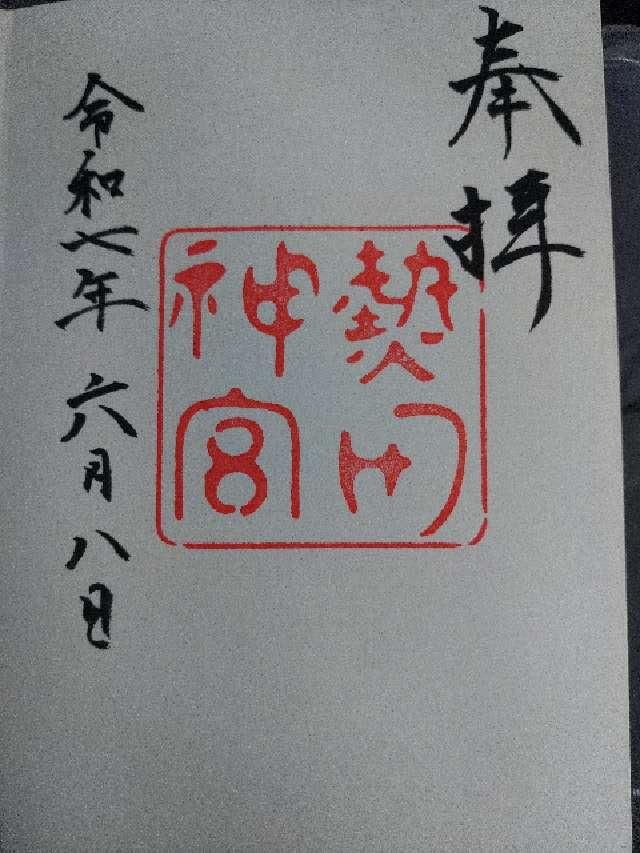 奉拝
熱田
神宮
令和七年六月八日